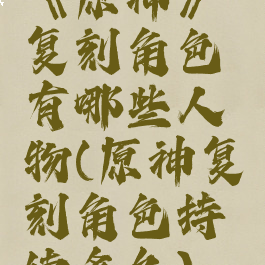 《原神》
复刻角色
有哪些人
物(原神复
刻角色持